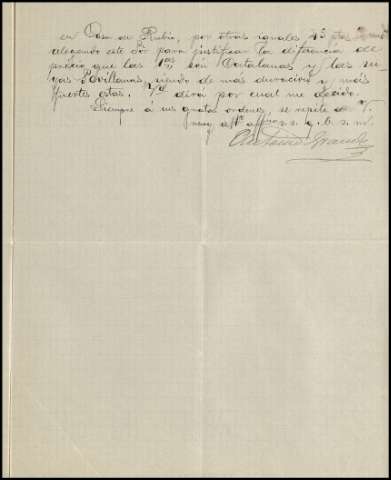 en Casa de Rubio, por otras iguales 45 ptas
alegando este Sr para justificar la diferencia de
précio que las 1as son Catalanas y las su
yas Sevillanas, siendo de más duración y más
fuertes estas. Vd dirá por cual me decido.
Siempre á sus gratas ordenes, se repite de V.
muy attº affmo s. s. q. b. s. m.
Antonio Grande